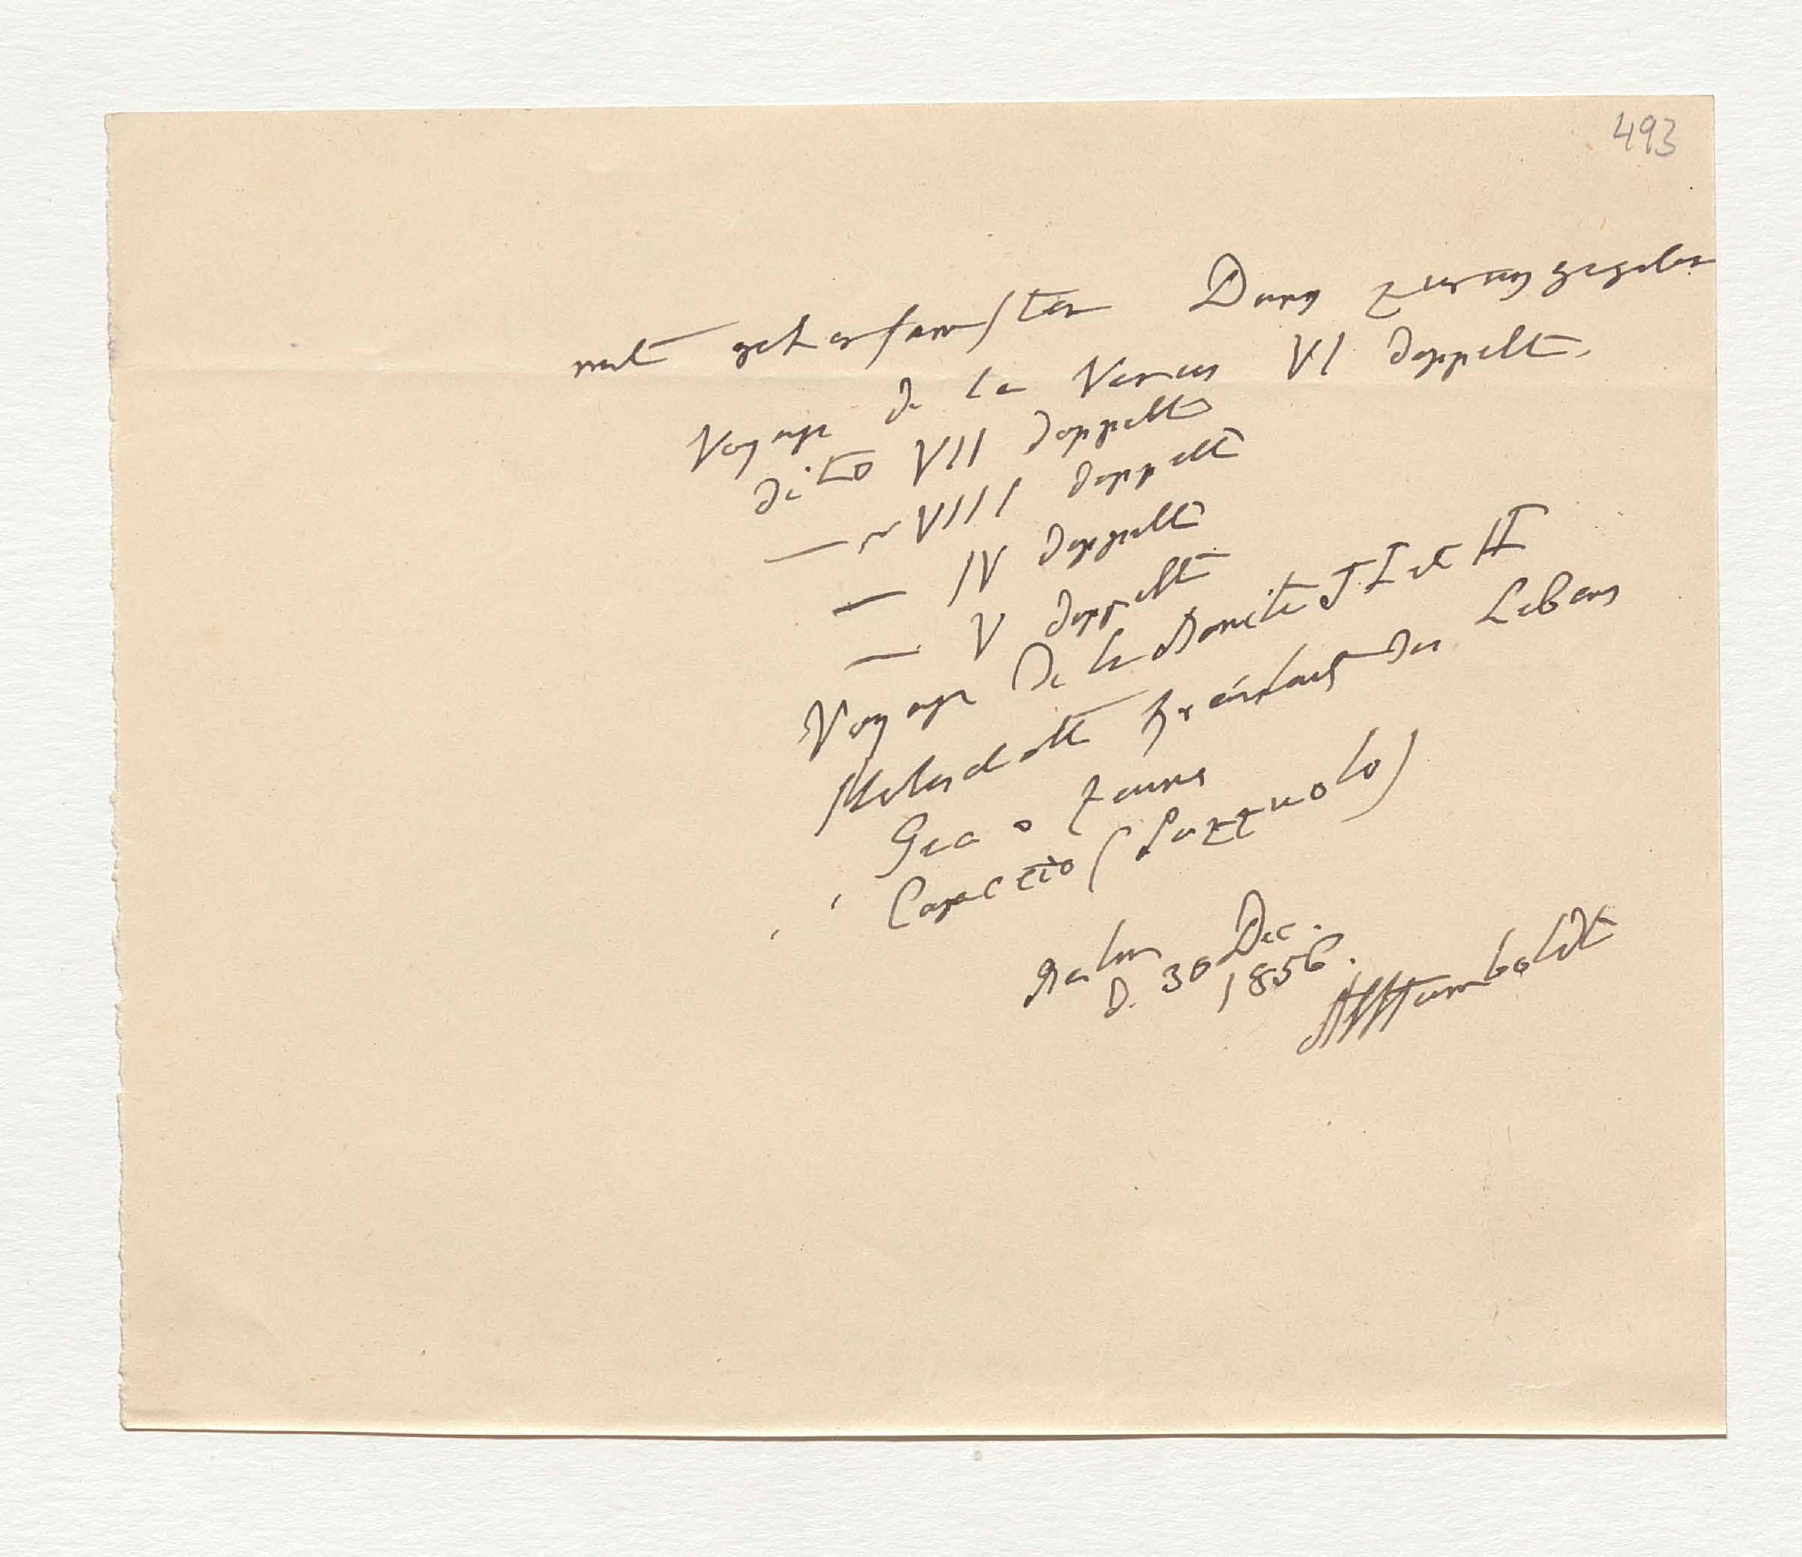 493
mit gehorsamsten Dank zurückgegeben
Voyage de la Venus VI doppelt.
dito VII doppelt
— VIII doppelt
— IV doppelt
— V doppelt
Voyage de la Bonite T I et II
Kreislauf des Lebens
Capaccio (Pozzuolo)
Berlin
d. 30 Dec.
1856.
AvHumboldt